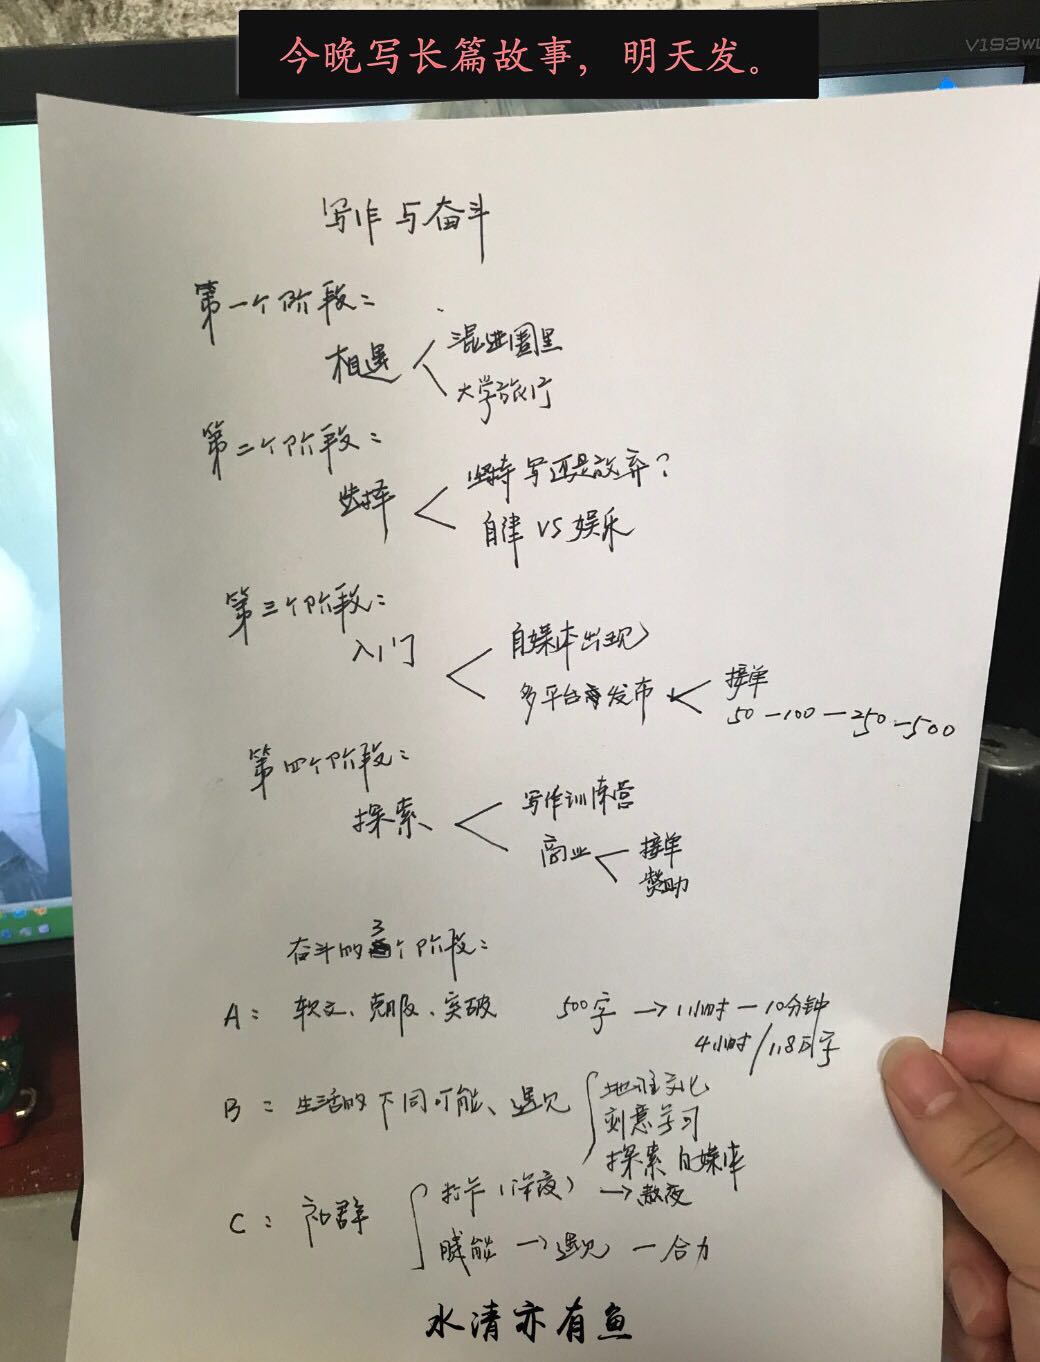 今晚写长篇故事，明天发。
V193W
写作与奋斗
第一个阶段：
相遇
混进圈里
大学旅行
第二个阶段：
选择
坚持写还是放弃？
自律 VS 娱乐
第三个阶段：
入门
自媒体出现
多平台发布
接单
50－100－250－500
第四个阶段：
探索
写作训练营
商业
接单
赞助
奋斗的3个阶段：
A： 软文、克服、突破 500字 → 1小时－10分钟
4小时/1.8万字
B： 生活的不同可能、遇见
地域文化
刻意学习
探索自媒体
C： 社群
打卡（深夜）→ 熬夜
赋能 → 遇见 － 合力
水清亦有鱼